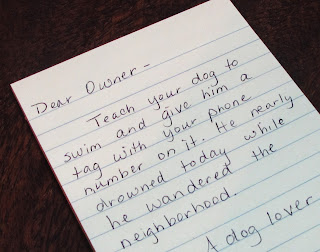 Dear Owner -
Teach your dog to
swim and give him a
tag with your phone
number on it. He nearly
drowned today while
he wandered the
neighborhood.
A dog lover